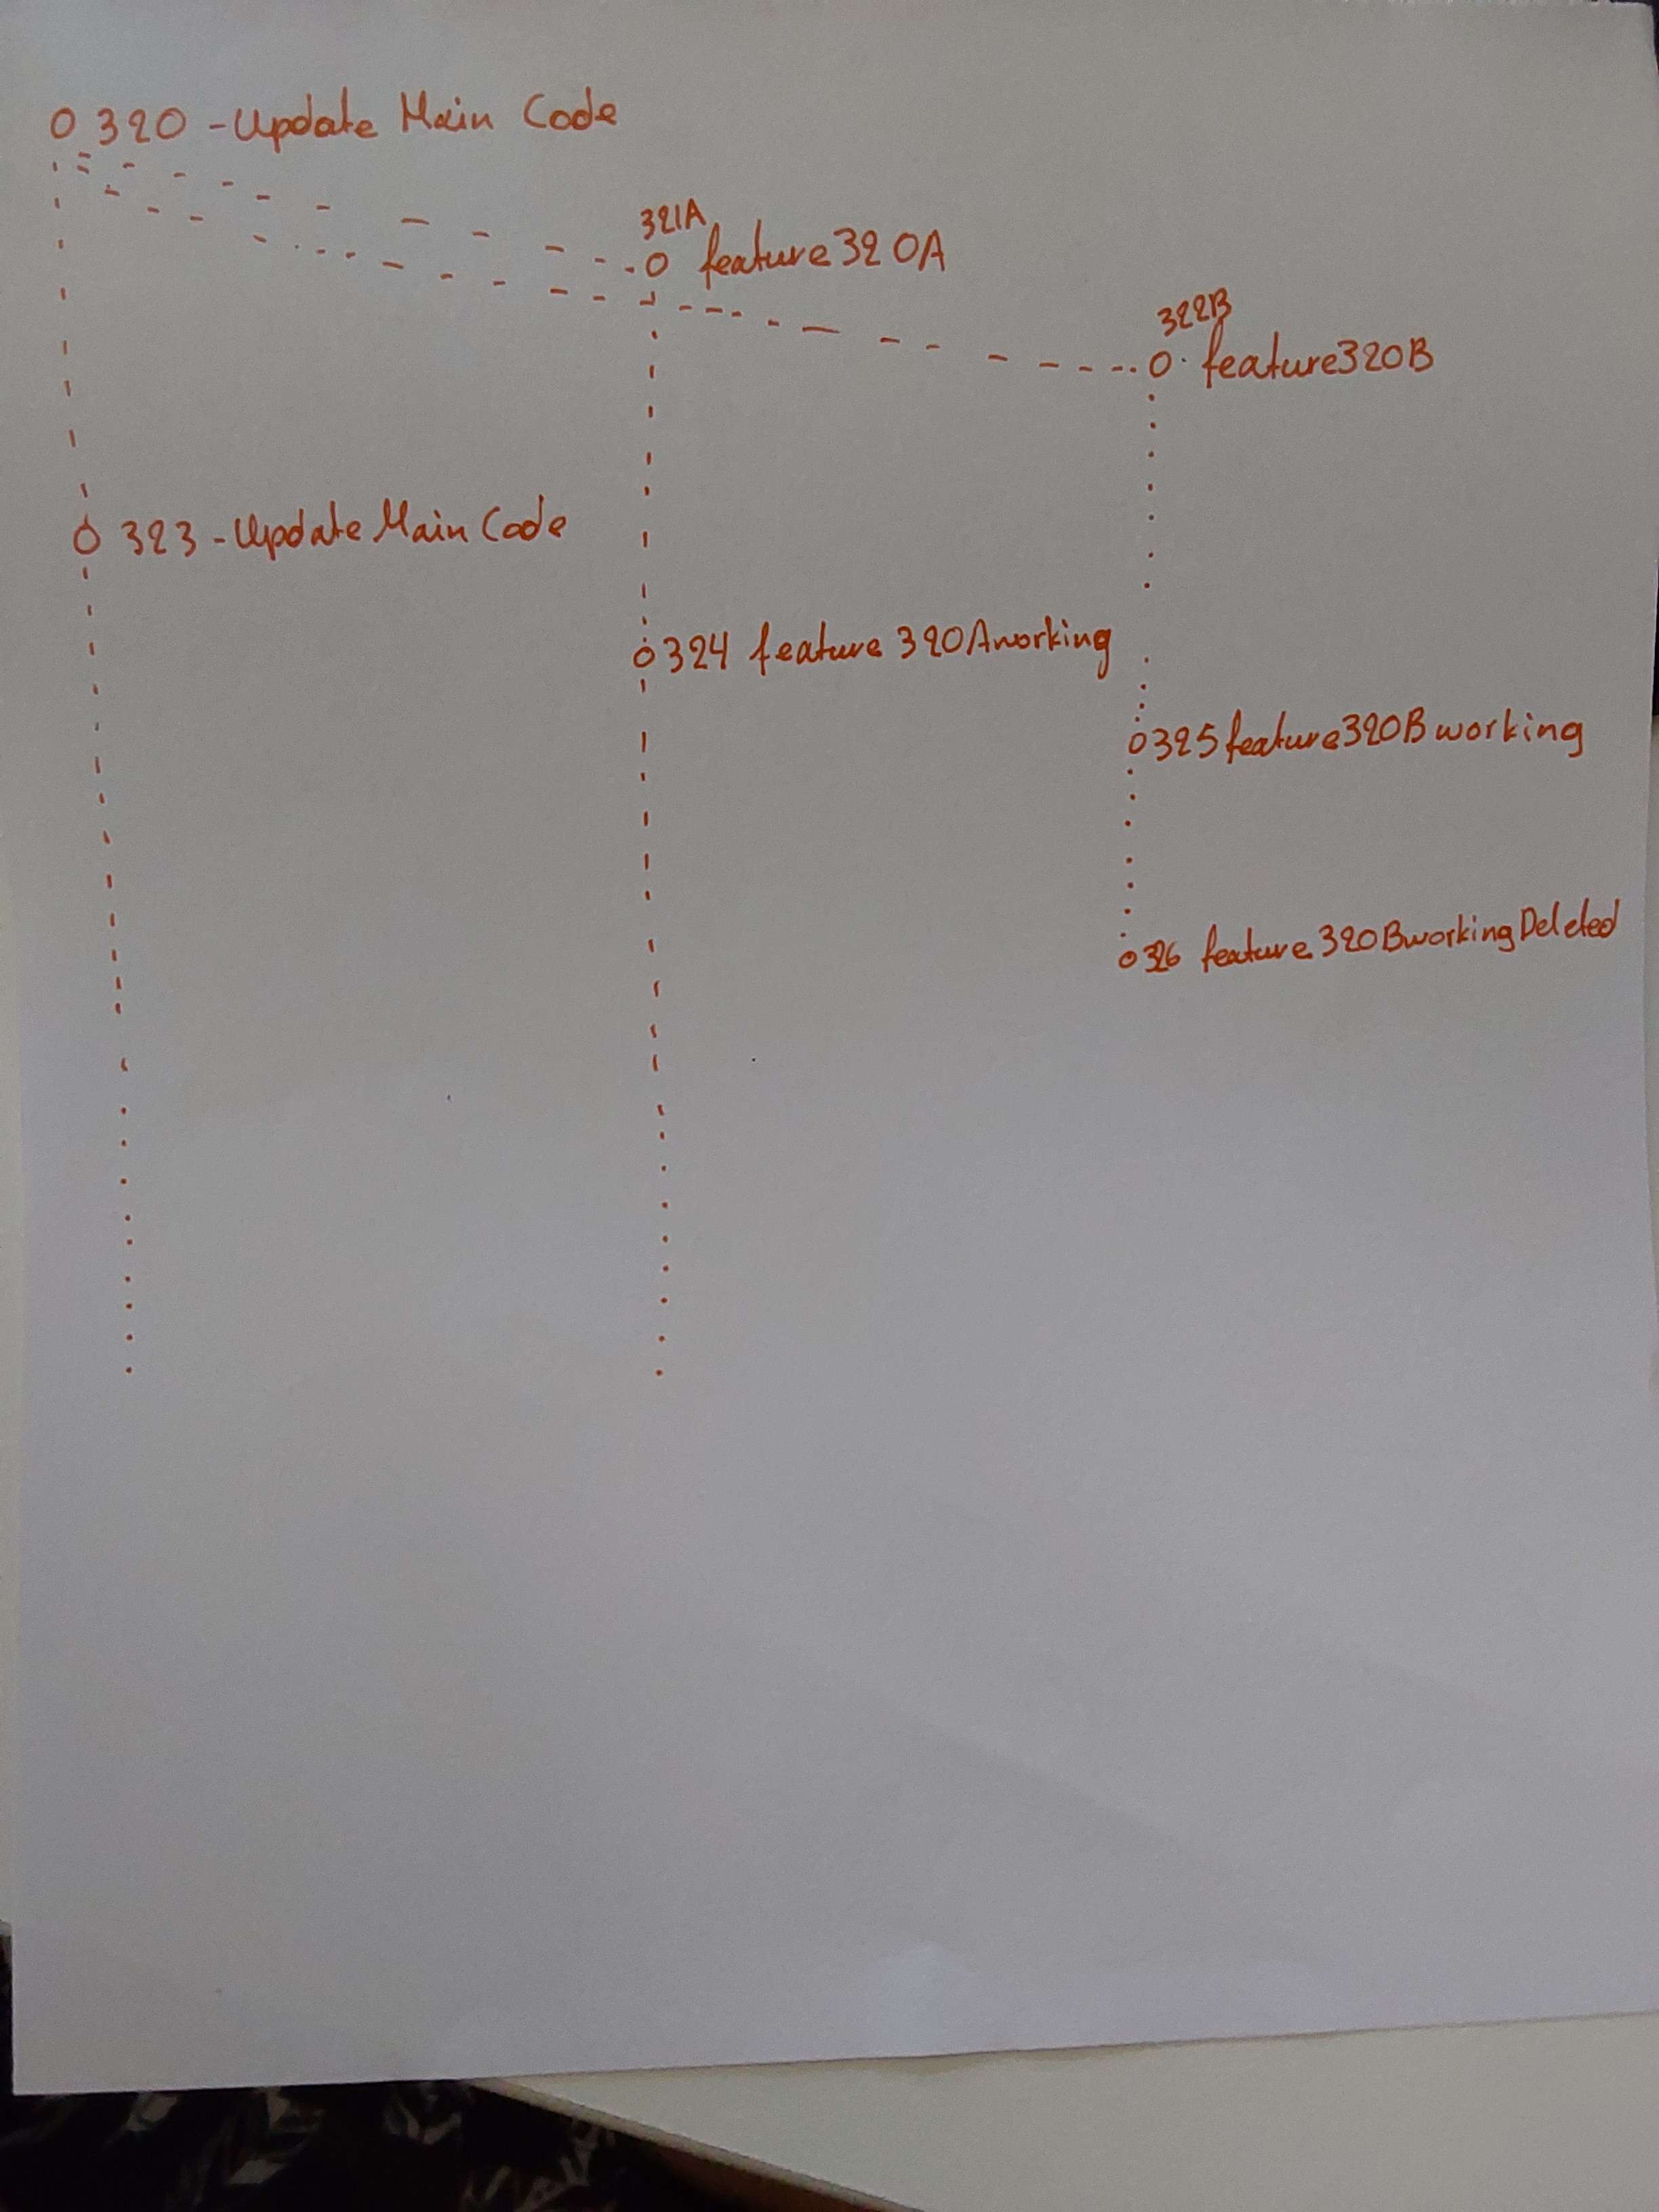 0 320 - Update Main Code
321A
0 feature320A
322B
0. feature320B
0 323 - Update Main Code
0 324 feature 320Aworking
0 325 feature320B working
0 326 feature 320BworkingDeleted